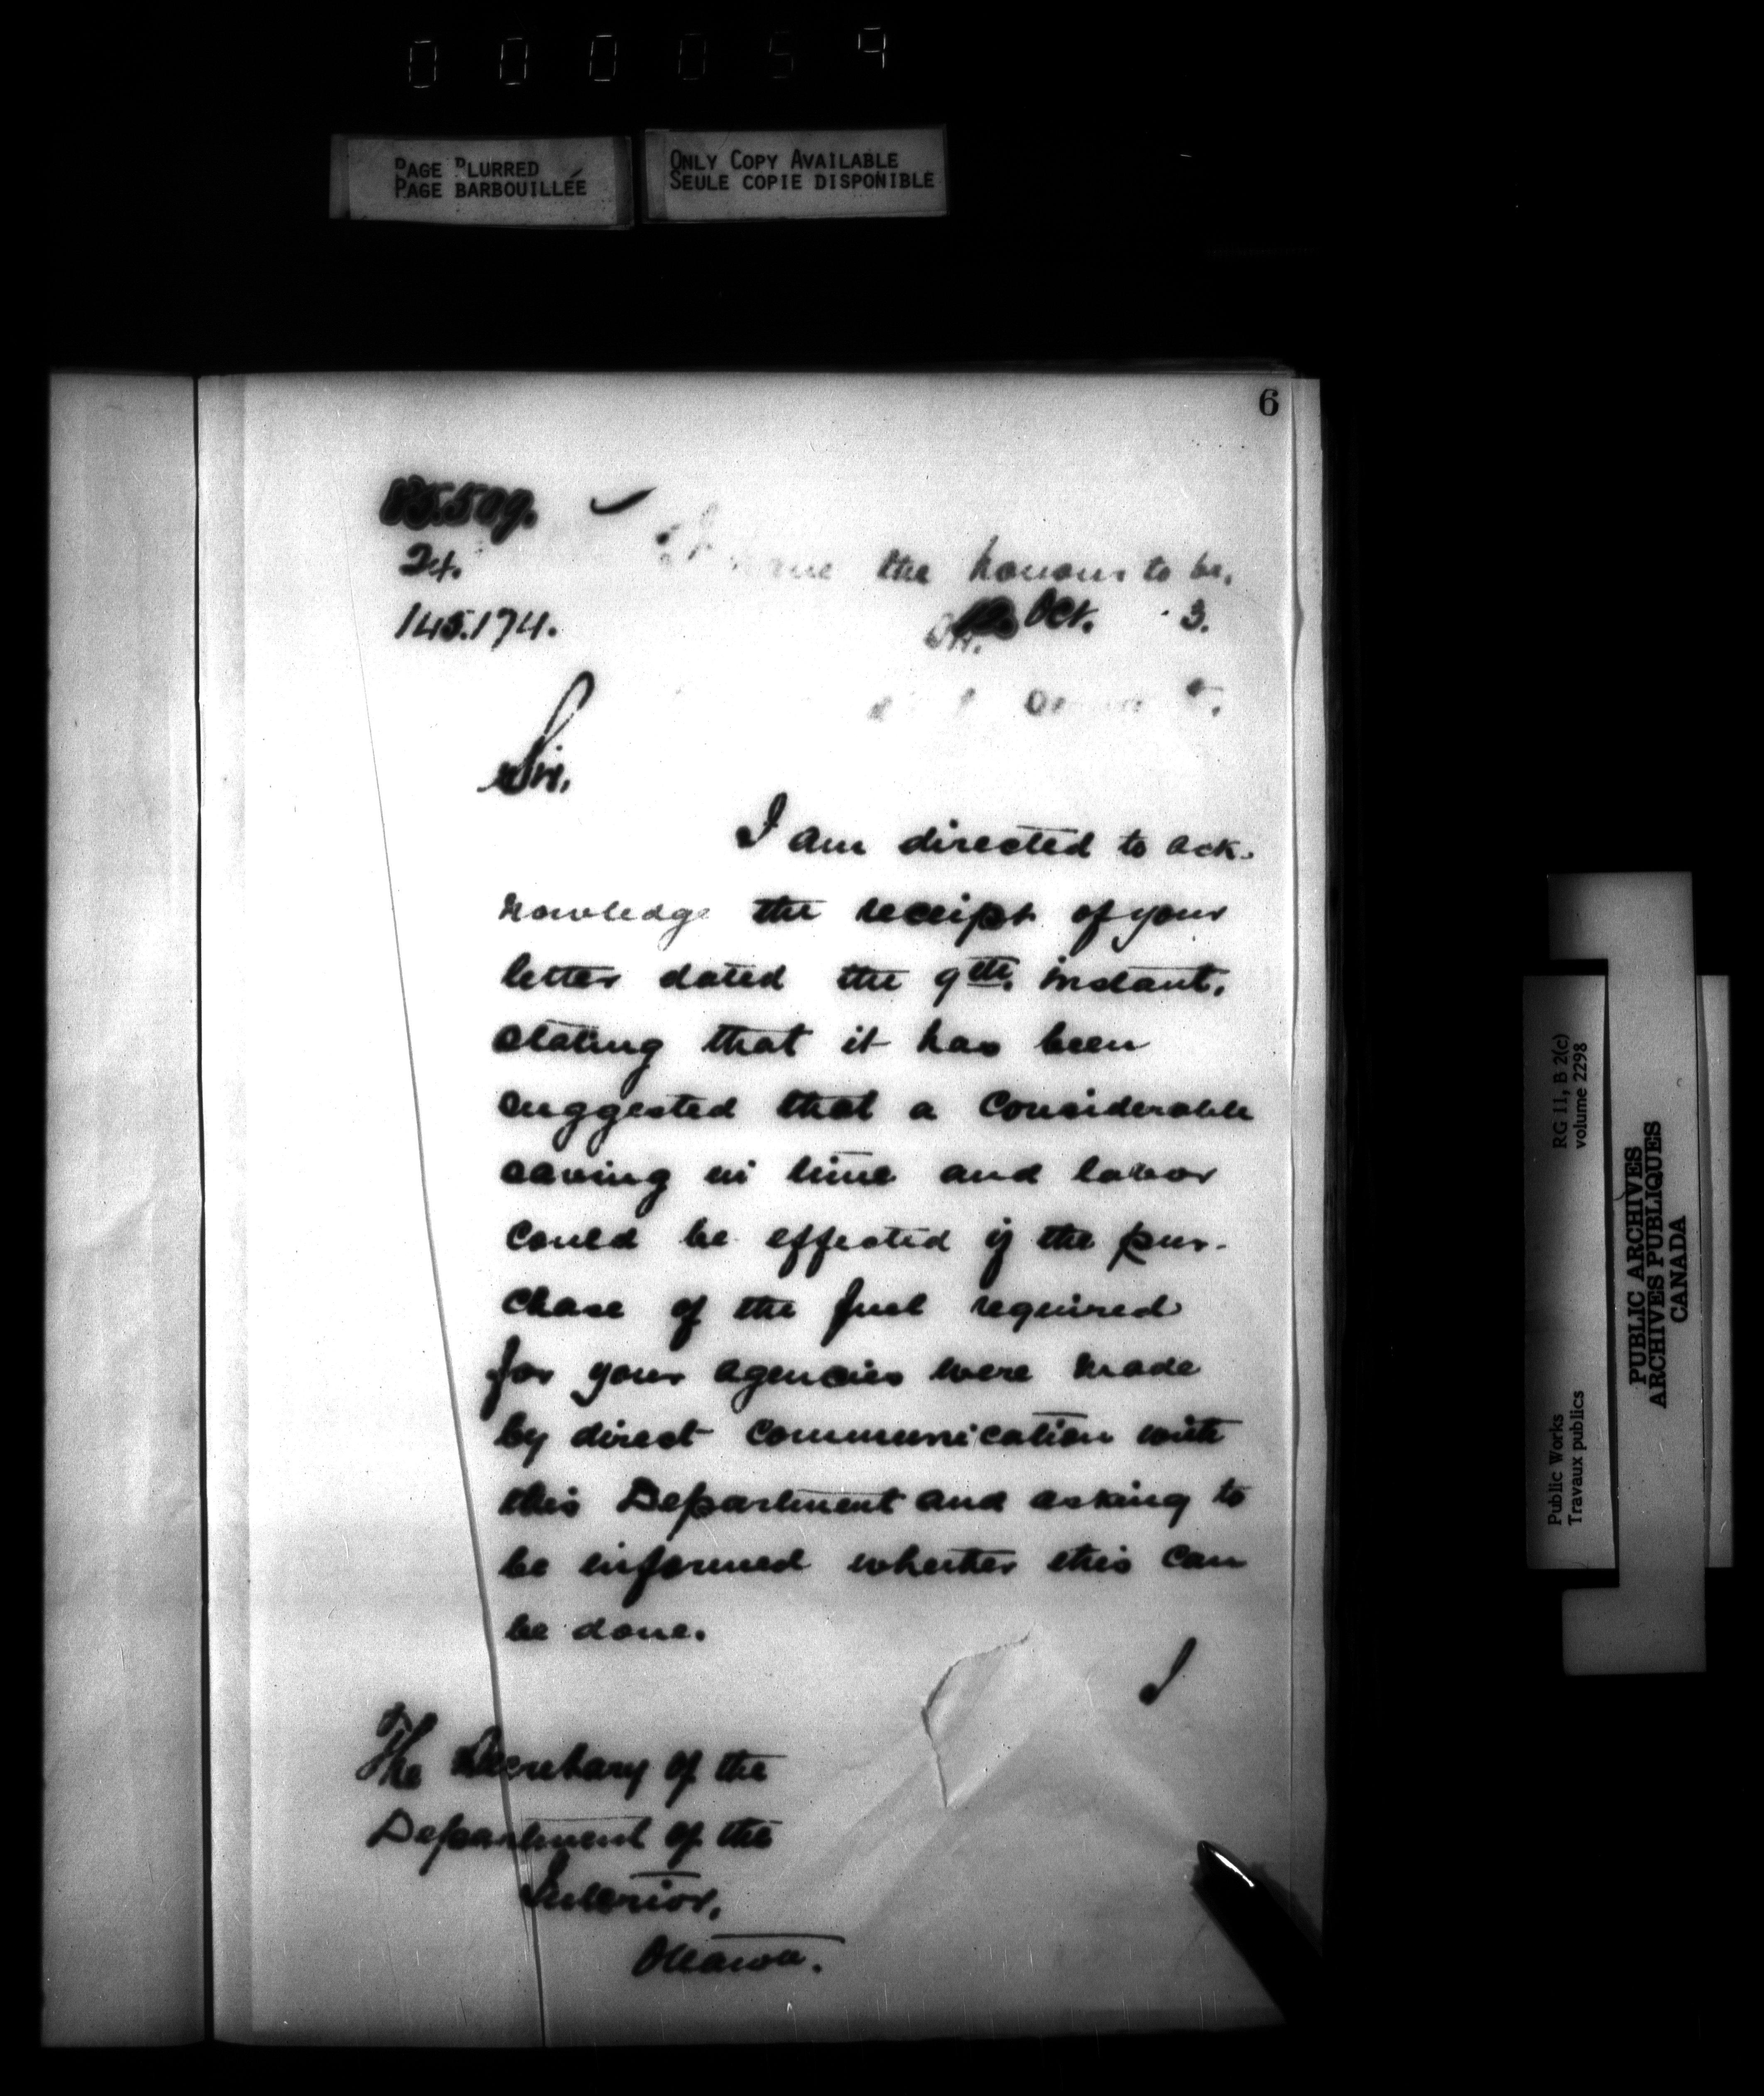 000059
PAGE BLURRED
PAGE BARBOUILLÉE
ONLY COPY AVAILABLE
SEULE COPIE DISPONIBLE
6
85.509.
24.
145.174.
the honour to be,
Sir.
Oct. 3.
Sir,
I am directed to ack-
nowledge the receipt of your
letter dated the 9th. instant,
stating that it has been
suggested that a considerable
saving in time and labor
could be effected if the pur-
chase of the fuel required
for your agencies were made
by direct communication with
this Department and asking to
be informed whether this can
be done.
I
The Secretary of the
Department of the
Interior,
Ottawa.
RG 11, B 2(c)
volume 2298
Public Works
Travaux publics
PUBLIC ARCHIVES
ARCHIVES PUBLIQUES
CANADA